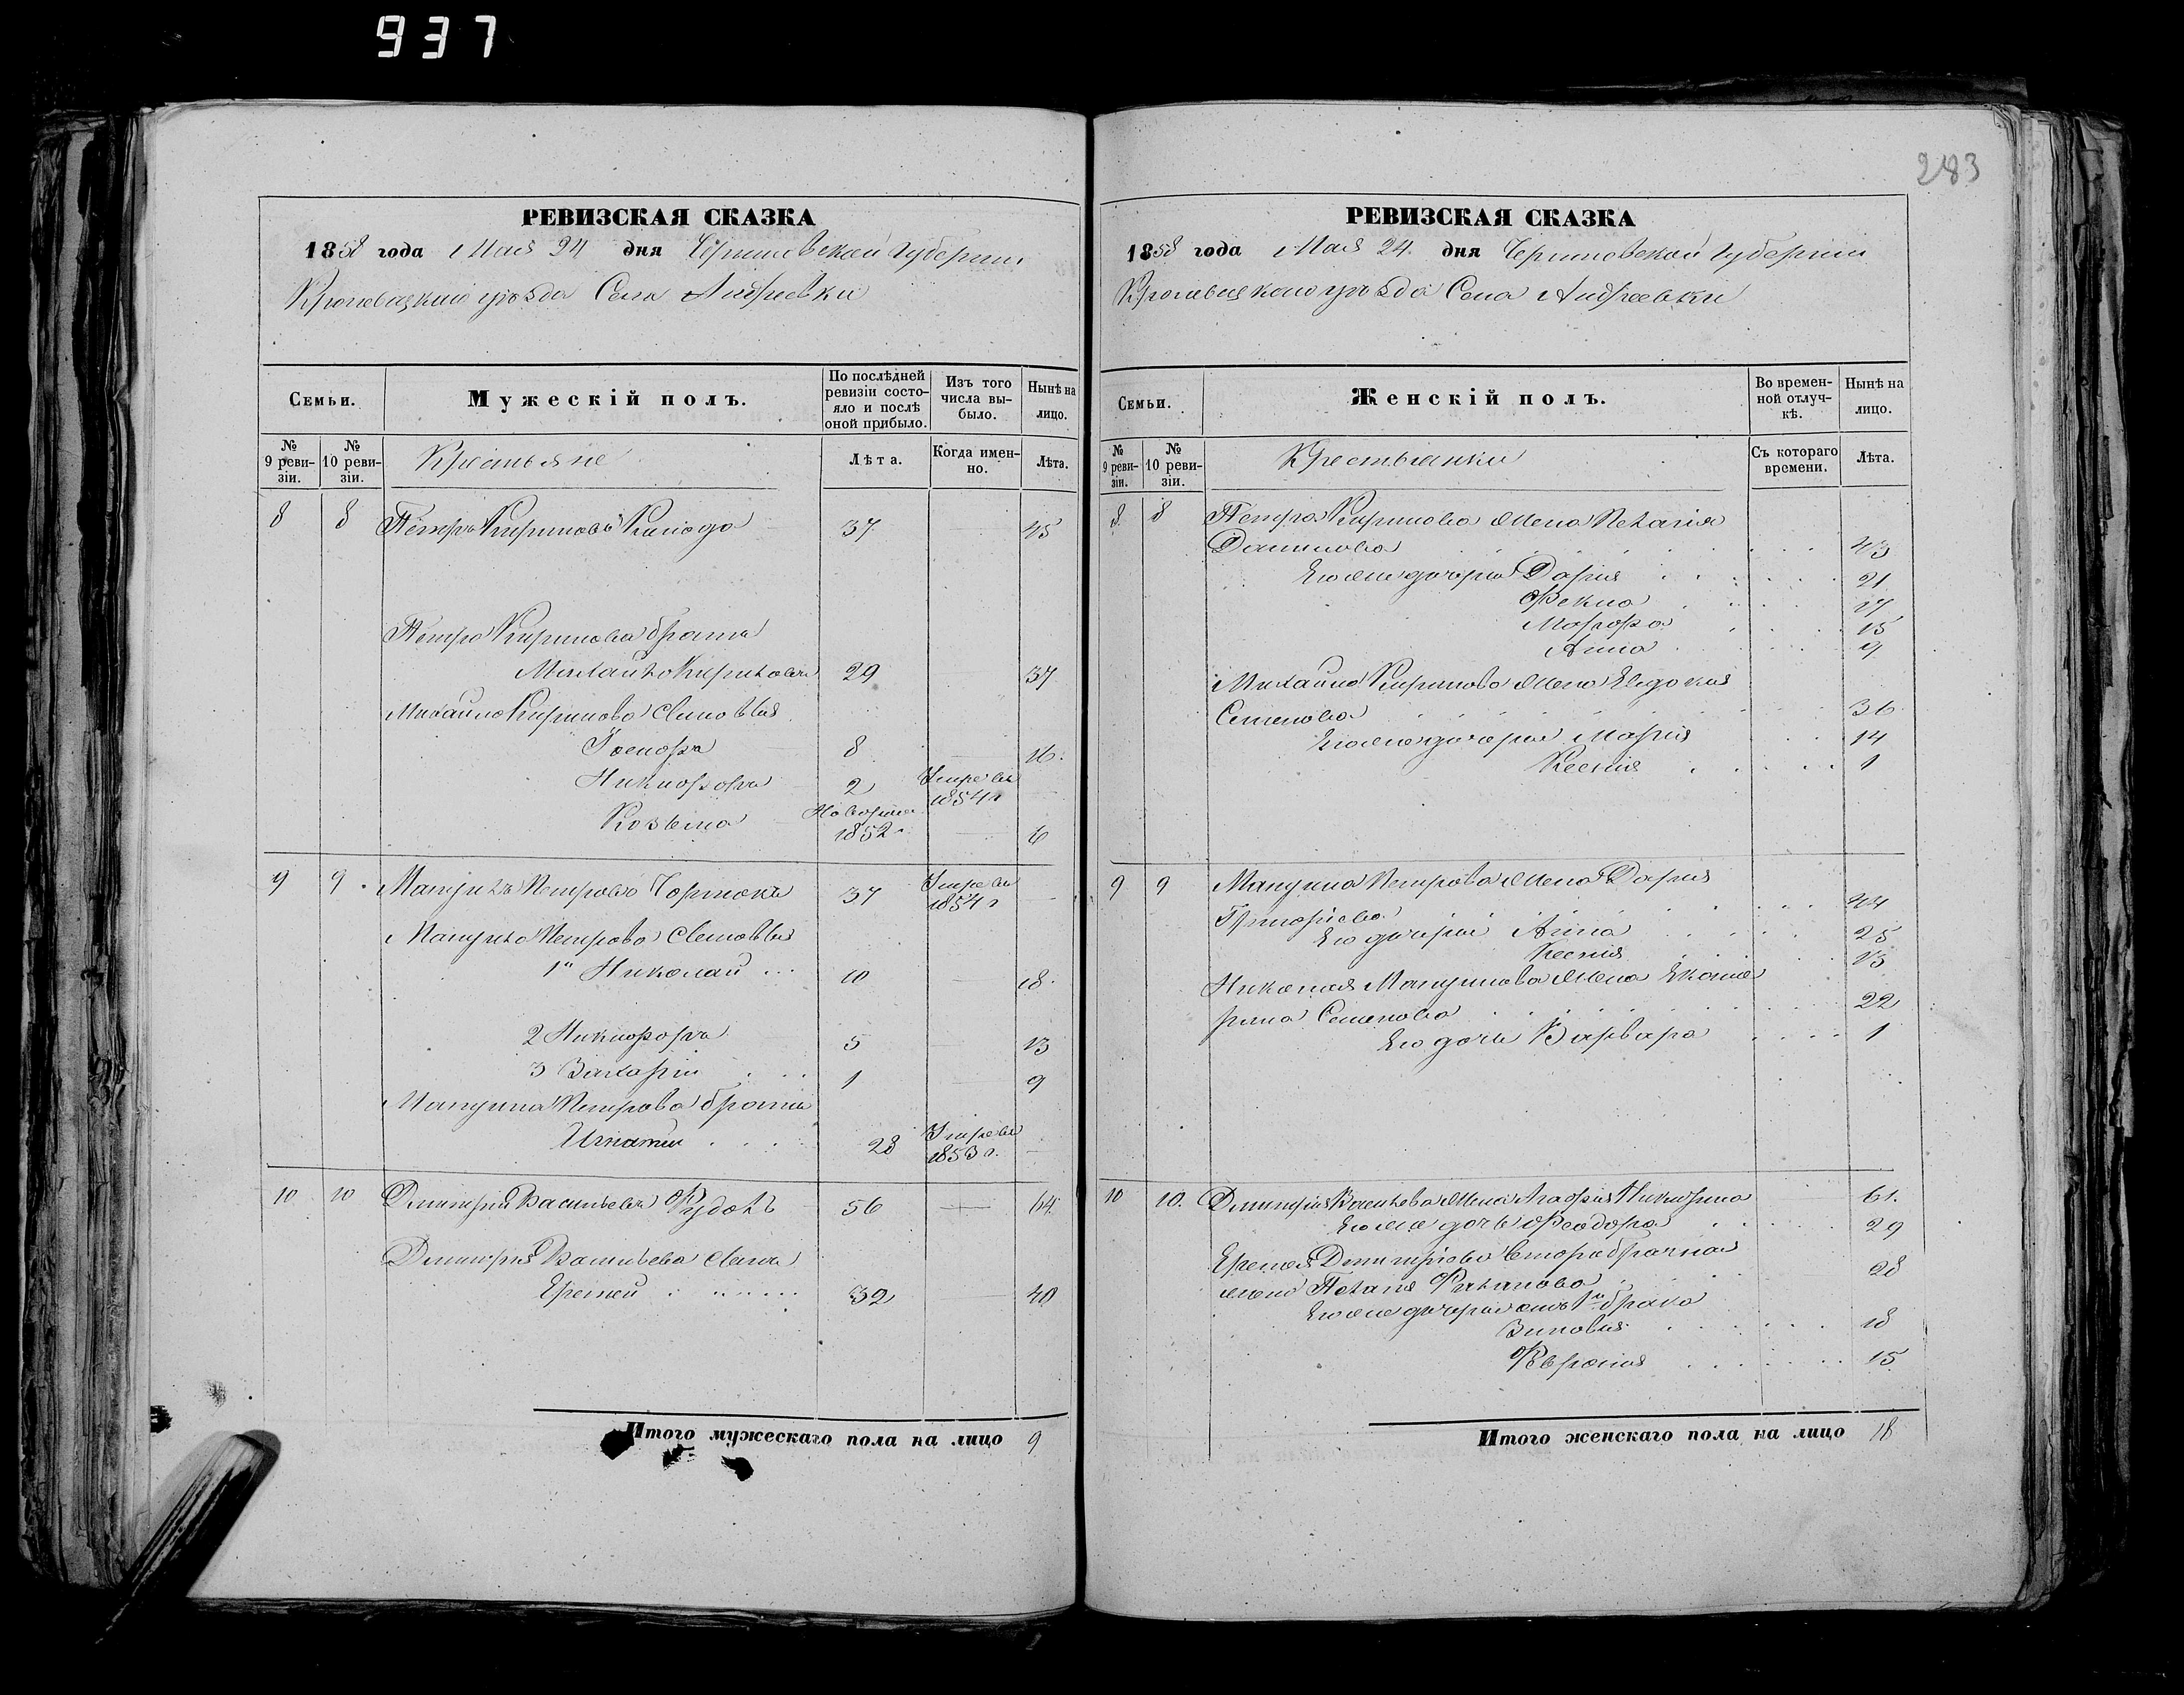 937
283
РЕВИЗСКАЯ СКАЗКА
1858 года Мая 24 дня Черниговской Губернии
Кролевецкаго уѣзда Села Андреевки
Семьи.
Мужескій полъ.
По послѣдней ревизіи состояло и послѣ оной прибыло.
Изъ того числа выбыло.
Нынѣ на лицо.
№ 9 ревизіи.
№ 10 ревизіи.
Крестьяне
Лѣта.
Когда именно.
Лѣта.
8 8 Петръ Кириловъ 37 45
Петра Кирилова братъ
Михайло Кириловъ 29 37
Михайла Кирилова сыновья
8 16.
Никифоръ 2 Умре въ 1854 г
Козьма Новорожд 1852 г. 6
9 9 Петровъ 37 Умре въ 1854 г
Петрова сыновья
1й Николай 10 18.
2 Никифоръ 5 13
3 Захарій 1 9
Петрова братъ
Игнатій 28 Умре въ 1853 г.
10 10 Димитрій Васильевъ 56 64.
Димитрія Васильева сынъ
Еремей 32 40
Итого мужескаго пола на лицо 9
РЕВИЗСКАЯ СКАЗКА
1858 года Мая 24. дня Черниговской Губернии
Кролевецкаго уѣзда Села Андреевки
Семьи.
Женскій полъ.
Во временной отлучкѣ.
Нынѣ на лицо.
№ 9 ревизіи.
№ 10 ревизіи.
Крестьянки
Съ котораго времени.
Лѣта.
8. 8 Петра Кирилова жена Пелагія
Данилова 43
Его же дочери Дарія 21
Фекла 17
Марфа 15
Анна 9
Михайла Кирилова жена Евдокия
Семенова 36
Его же дочери Марія 14
Ксенія 1
9 9 Петрова жена Дарія
Григоріева 44
Его дочери Анна 25
Ксенія 13
Николая жена Екате
рина Семенова 22
Его дочь Варвара 1
10 10. Димитрія Васильева жена Агафія 61.
Его же дочь Феодора 29
Еремея Димитріева второбрачная
жена Пелагія 28
Его же дочери отъ 1го брака
Зиновія 18
Февронія 15
Итого женскаго пола на лицо 18